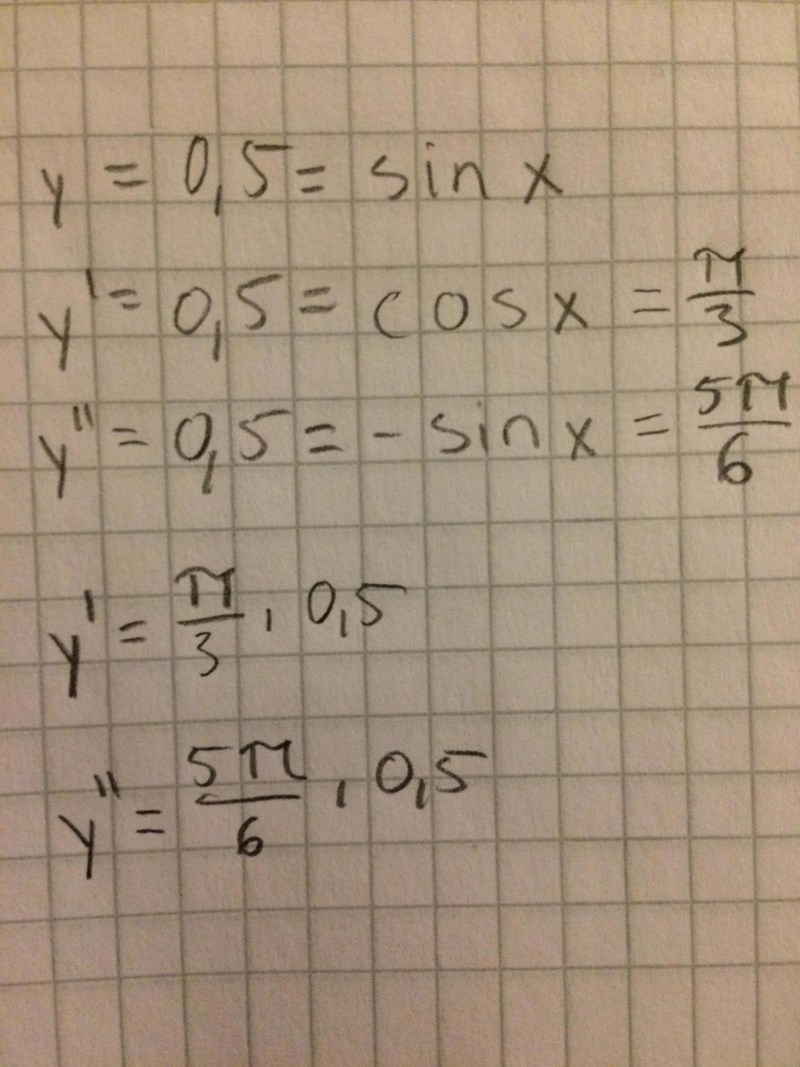 y = 0,5 = sin x
y' = 0,5 = cos x = π/3
y'' = 0,5 = - sin x = 5π/6
y' = π/3, 0,5
y'' = 5π/6, 0,5